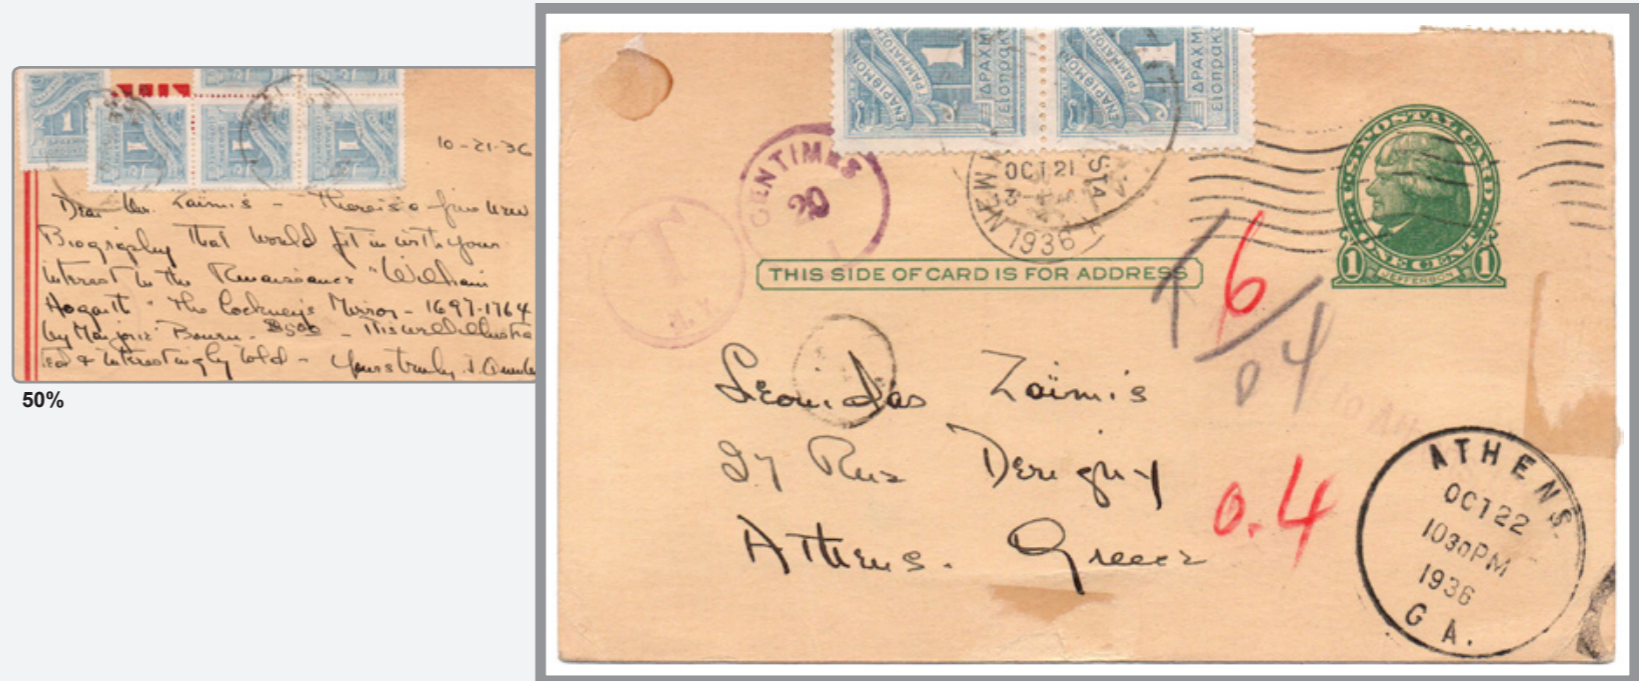 10-21-36
Dear Mr. Zaïmis - There is a fine new
Biography that would fit in with your
interest in the Renaissance "William
Hogarth" The Cockney's Mirror - 1697-1764
by Marjorie Bowen - $5.00 - It is well illustra
ted & interestingly told - Yours truly,
50%
1
1
1
1
ΕΝΑΡΙΘΜΟΝ
ΓΡΑΜΜΑΤΟΣΗΜ
1
ΔΡΑΧΜ
εἰσπρακ
ΕΝΑΡΙΘΜΟΝ
ΓΡΑΜΜΑΤΟΣΗ
1
ΔΡΑΧΜΗ
εἰσπρακ
CENTIMES
20
T
N.Y.
OCT 21
3-PM
1936
STA.
U.S. POSTAL CARD
ONE CENT
1 JEFFERSON 1
THIS SIDE OF CARD IS FOR ADDRESS
6
04
Leonidas Zaïmis
37 Rue Derigny
0.4
Athens. Greece
ATHENS.
OCT 22
1030 PM
1936
GA.